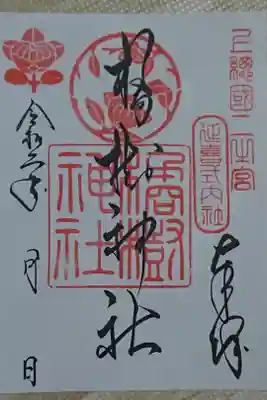 上總國二之宮
延喜式内社
奉拝
橘樹神社
橘樹神社
令和二年
月
日